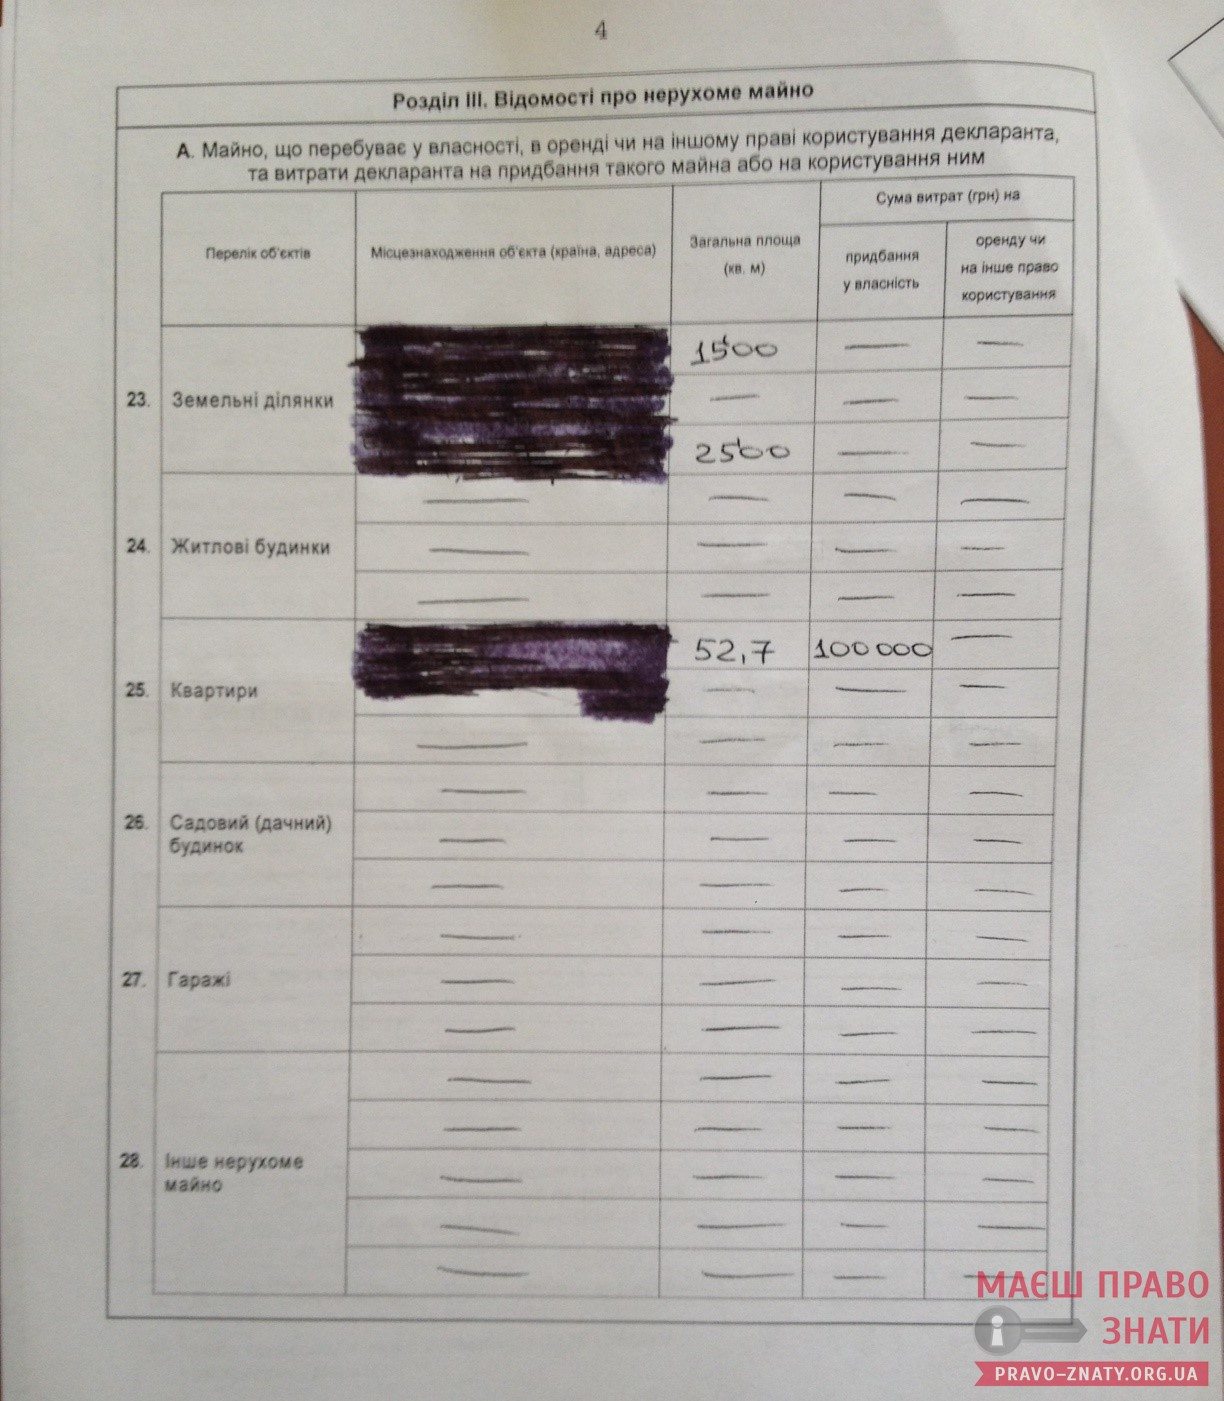 4
Розділ III. Відомості про нерухоме майно
А. Майно, що перебуває у власності, в оренді чи на іншому праві користування декларанта,
та витрати декларанта на придбання такого майна або на користування ним
Перелік об'єктів
Місцезнаходження об'єкта (країна, адреса)
Загальна площа
(кв. м)
Сума витрат (грн) на
придбання
у власність
оренду чи
на інше право
користування
23. Земельні ділянки
1500 — —
— — —
2500 — —
24. Житлові будинки
— — — —
— — — —
— — — —
25. Квартири
52,7 100 000 —
— — —
— — — —
26. Садовий (дачний)
будинок
— — — —
— — — —
— — — —
27. Гаражі
— — — —
— — — —
— — — —
28. Інше нерухоме
майно
— — — —
— — — —
— — — —
— — — —
— — — —
МАЄШ ПРАВО
ЗНАТИ
PRAVO-ZNATY.ORG.UA